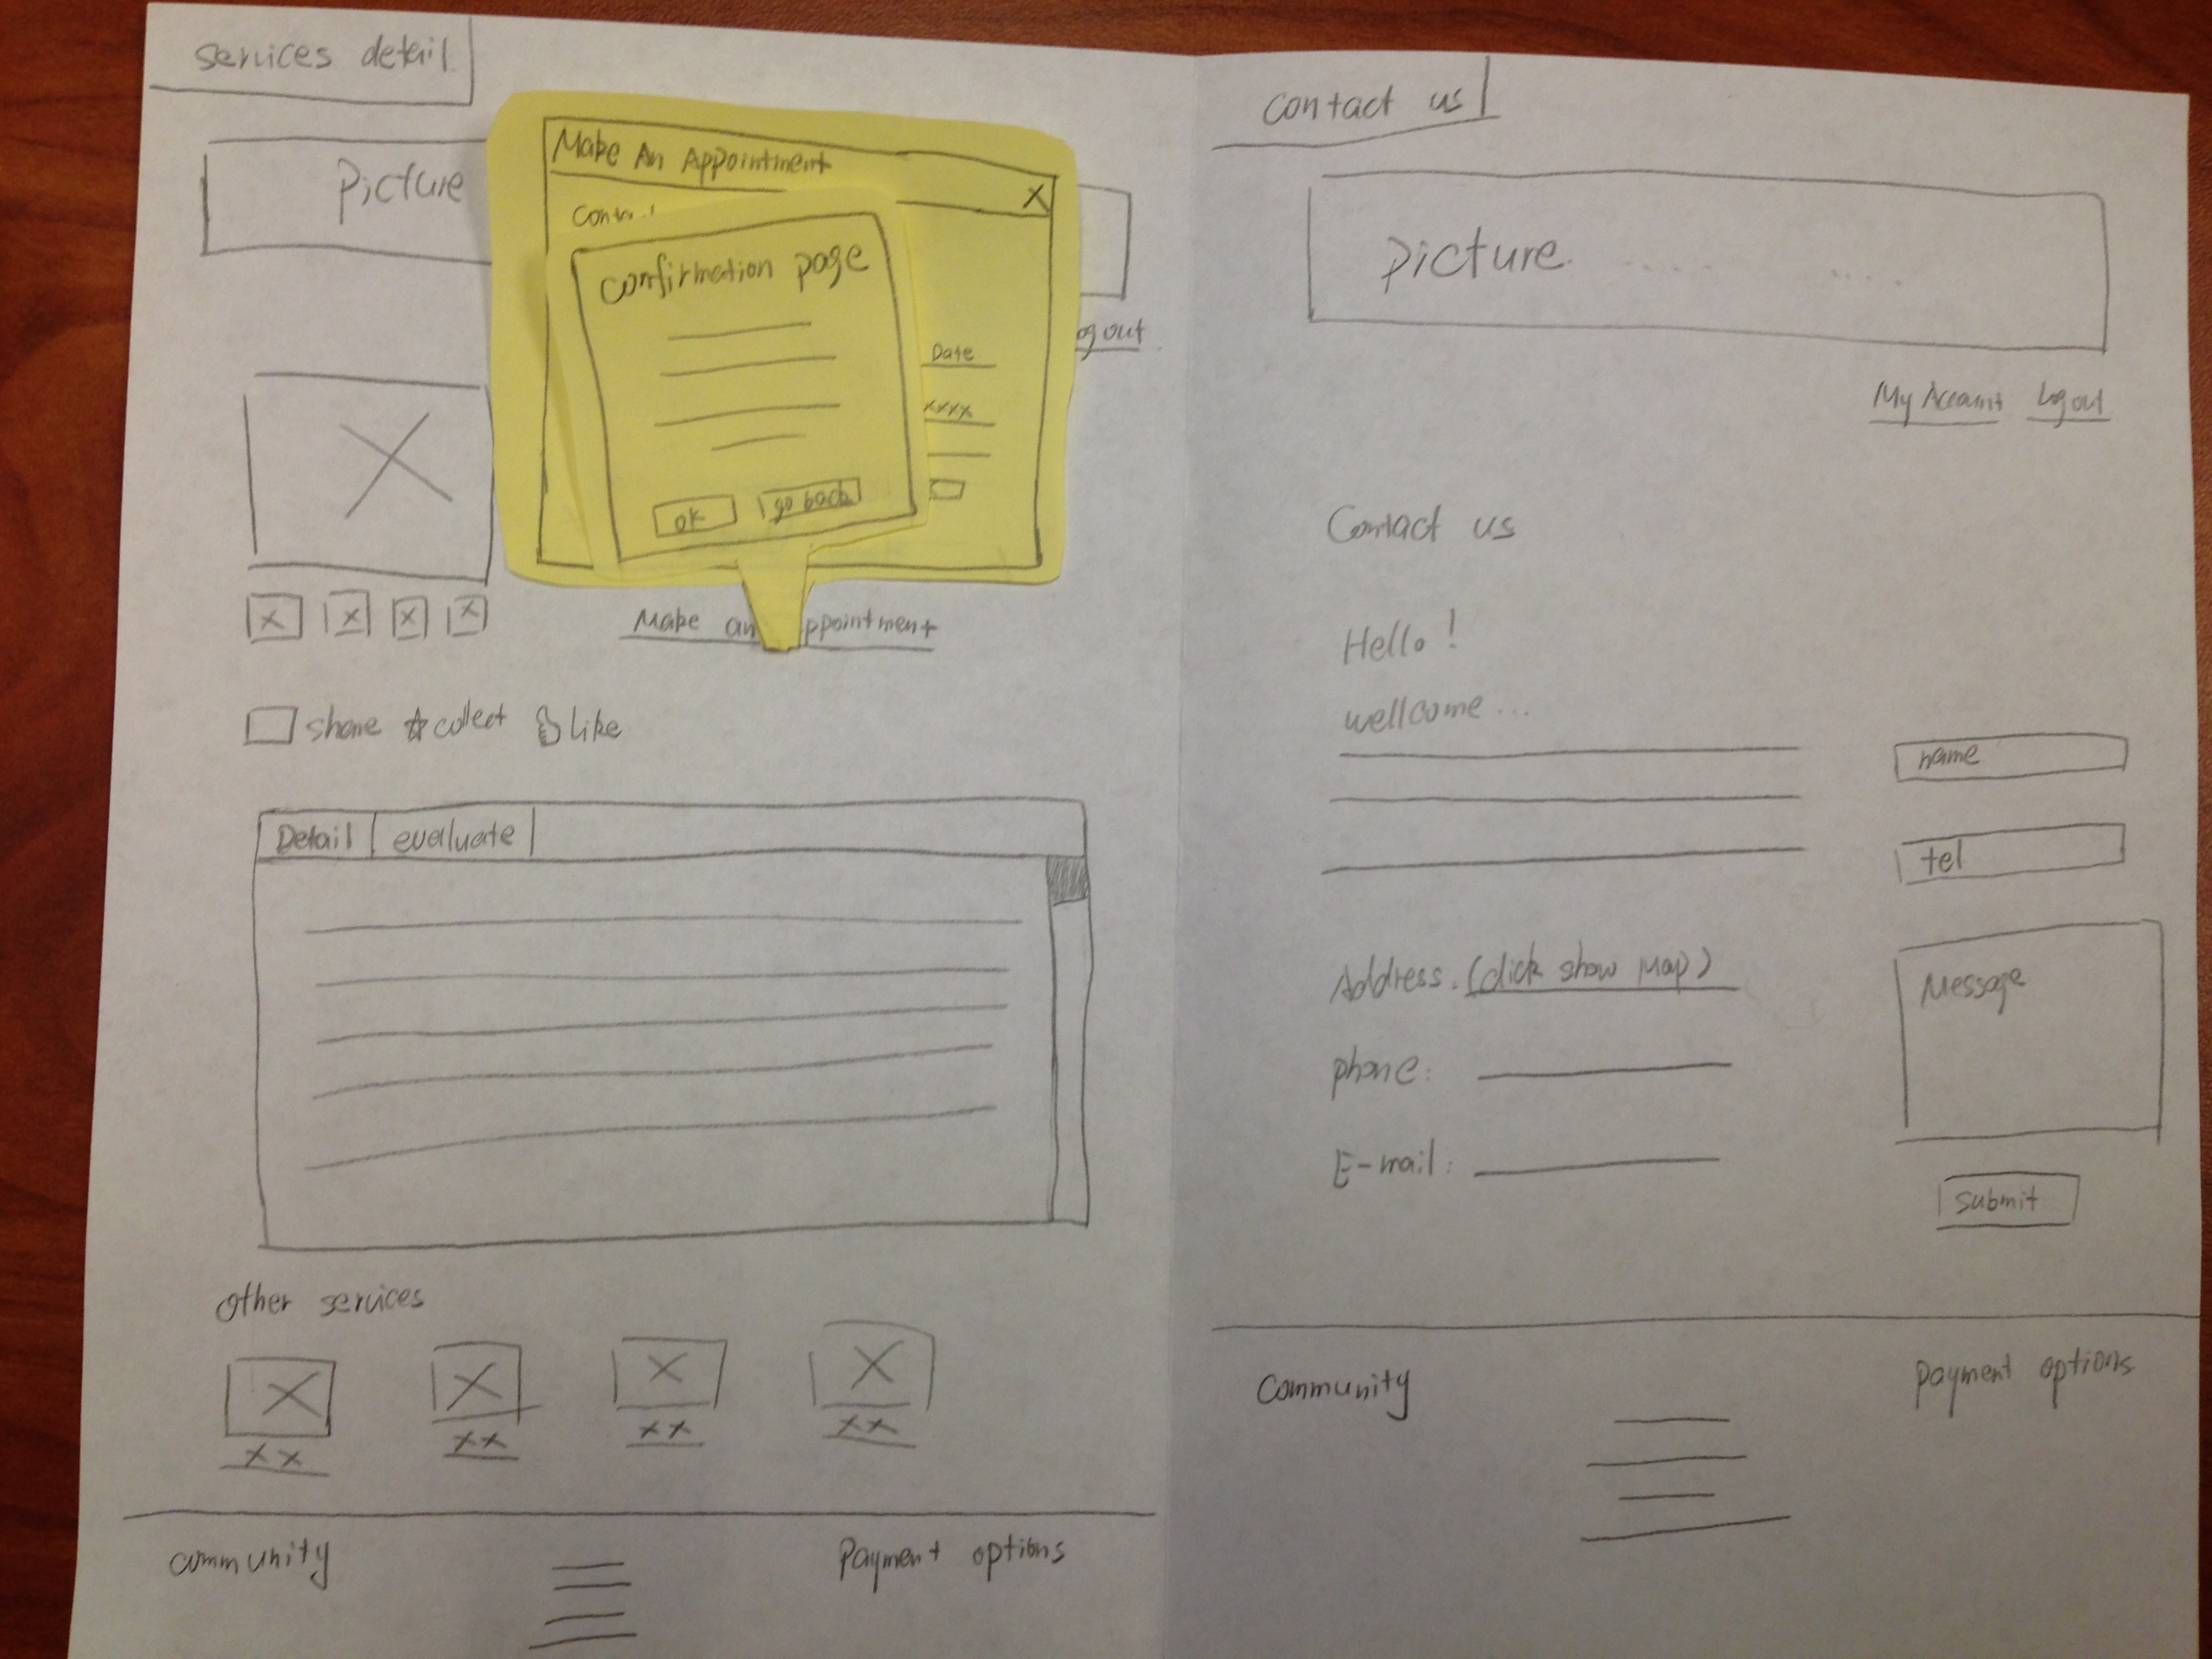 services detail
Picture
Make An Appointment
X
confirmation page
Date
xxxx
ok
go back
og out
Make an ppointment
share collect like
Detail evaluate
other services
xx xx xx xx
community
Payment options
contact us
picture
My Account Log out
Contact us
Hello!
wellcome ...
name
tel
Address. (click show Map)
Message
phone:
E-mail:
submit
community
payment options